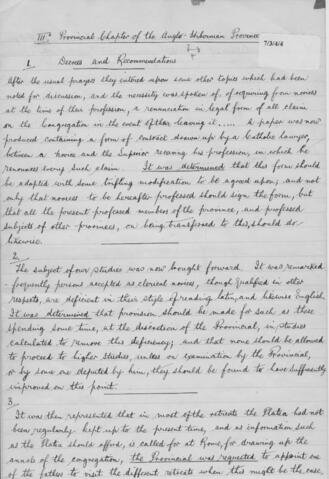 IIIrd Provincial Chapter of the Anglo-Hibernian Province
7/3/6/6
1. Decrees and Recommendations
After the usual prayers they entered upon some other topics which had been
noted for discussion, and the necessity was spoken of, of requiring from novices
at the time of their profession, a renunciation in legal form of all claim
on the Congregation in the event of their leaving it..... A paper was now
produced containing a form of contract drawn up by a Catholic lawyer,
between a novice and the Superior receiving his profession, in which he
renounces every such claim. It was determined that this form should
be adopted with some trifling modification to be agreed upon; and not
only that novices to be hereafter professed should sign the form, but
that all the present professed members of the province, and professed
subjects of other provinces, on being transferred to this, should do
likewise.
2.
The subject of our studies was now brought forward. It was remarked
frequently persons accepted as clerical novices, though qualified in other
respects, are deficient in their style of reading latin, and likewise English.
It was determined that provision should be made for such as these
spending some time, at the discretion of the Provincial, in studies
calculated to remove this deficiency; and that none should be allowed
to proceed to higher studies, unless on examination by the Provincial,
or by some one deputed by him, they should be found to have sufficiently
improved on this point.
3.
It was then represented that in most of the retreats the Platea had not
been regularly kept up to the present time, and as information such
as the Platea should afford, is called for at Rome, for drawing up the
annals of the congregation, the Provincial was requested to appoint one
of the fathers to visit the different retreats when this might be the case,